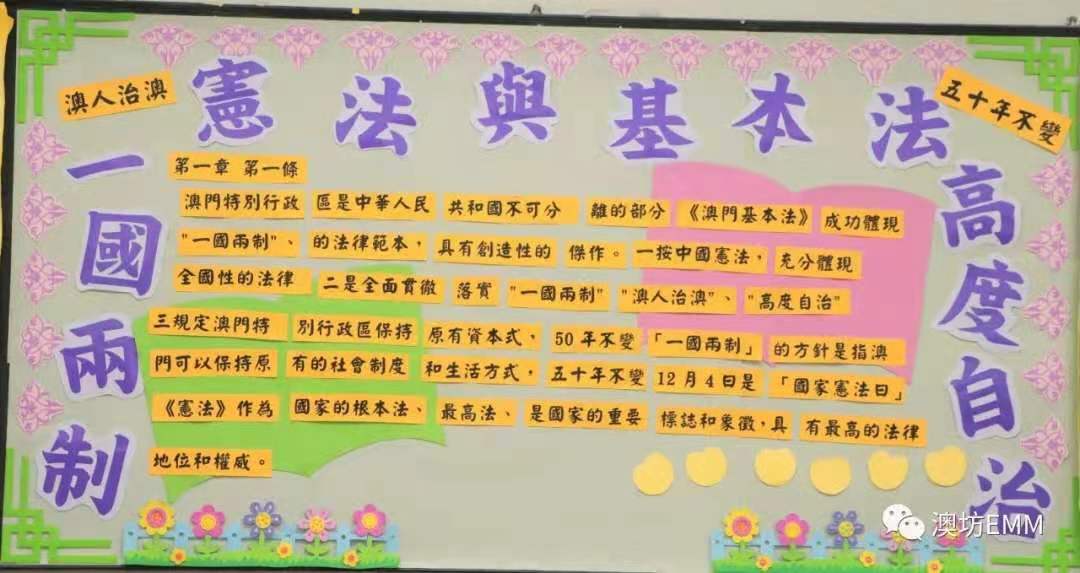 澳人治澳
憲法與基本法
五十年不變
一國兩制
高度自治
第一章 第一條
澳門特別行政 區是中華人民 共和國不可分 離的部分 《澳門基本法》 成功體現
"一國兩制"、 的法律範本, 具有創造性的 傑作。 一按中國憲法, 充分體現
全國性的法律 二是全面貫徹 落實 "一國兩制" "澳人治澳"、 "高度自治"
三規定澳門特 別行政區保持 原有資本式, 50年不變 「一國兩制」 的方針是指澳
門可以保持原 有的社會制度 和生活方式, 五十年不變 12月4日是 「國家憲法日」
《憲法》作為 國家的根本法、 最高法、 是國家的重要 標誌和象徵,具 有最高的法律
地位和權威。
澳坊EMM